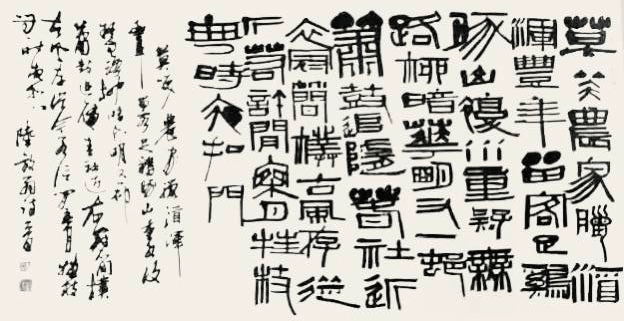 莫笑農家臘酒
渾豐年留客足雞
豚山復水重疑無
路柳暗花明又一邨
簫鼓追隨春社近
衣冠簡樸古風存從
今若許閒乘月拄杖
無時夜扣門
莫笑農家臘酒渾
豐年留客足雞豚山重水復
疑無路柳暗花明又一邨
簫鼓追隨春社近衣冠簡樸
古風存從今若許閒乘月拄杖
無時夜扣門 陸放翁詩